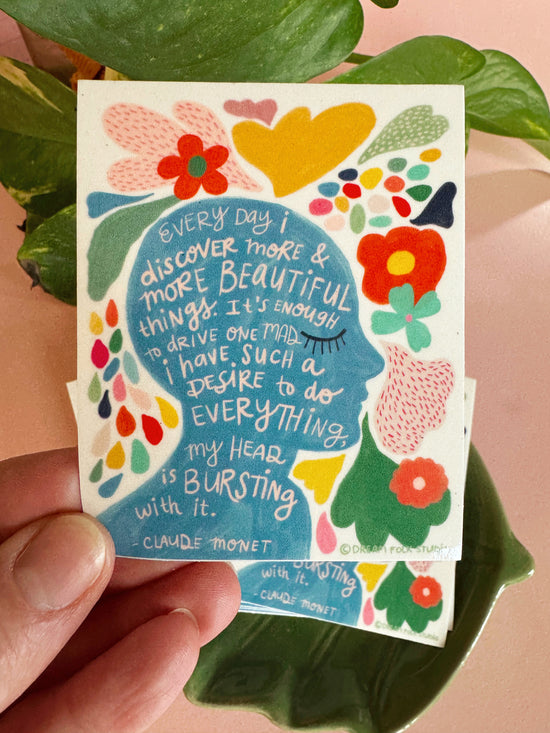 EVERY DAY i
discover more &
more BEAUTIFUL
things. It's ENOUGH
to DRIVE ONE MAD
i have such a
DESIRE to do
EVERYTHING,
my HEAD
is BURSTING
with it.
- CLAUDE MONET
©DREAMFOLK STUDIO
BURSTING
with it.
- CLAUDE MONET